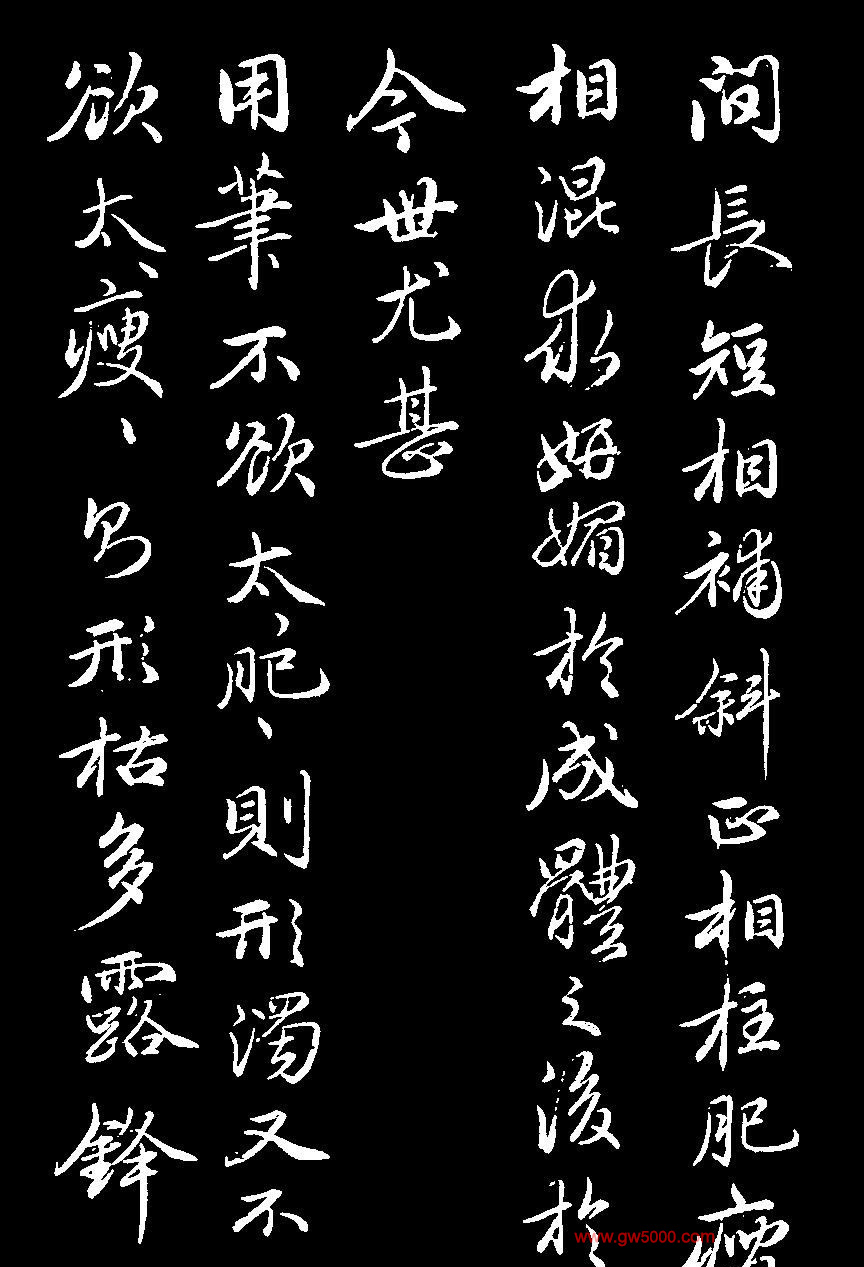 間長短相補斜正相柱肥瘦
相混求妍媚於成體之後於
今世尤甚
用筆不欲太肥、則形濁又不
欲太瘦、則形枯多露鋒
www.gw5000.com